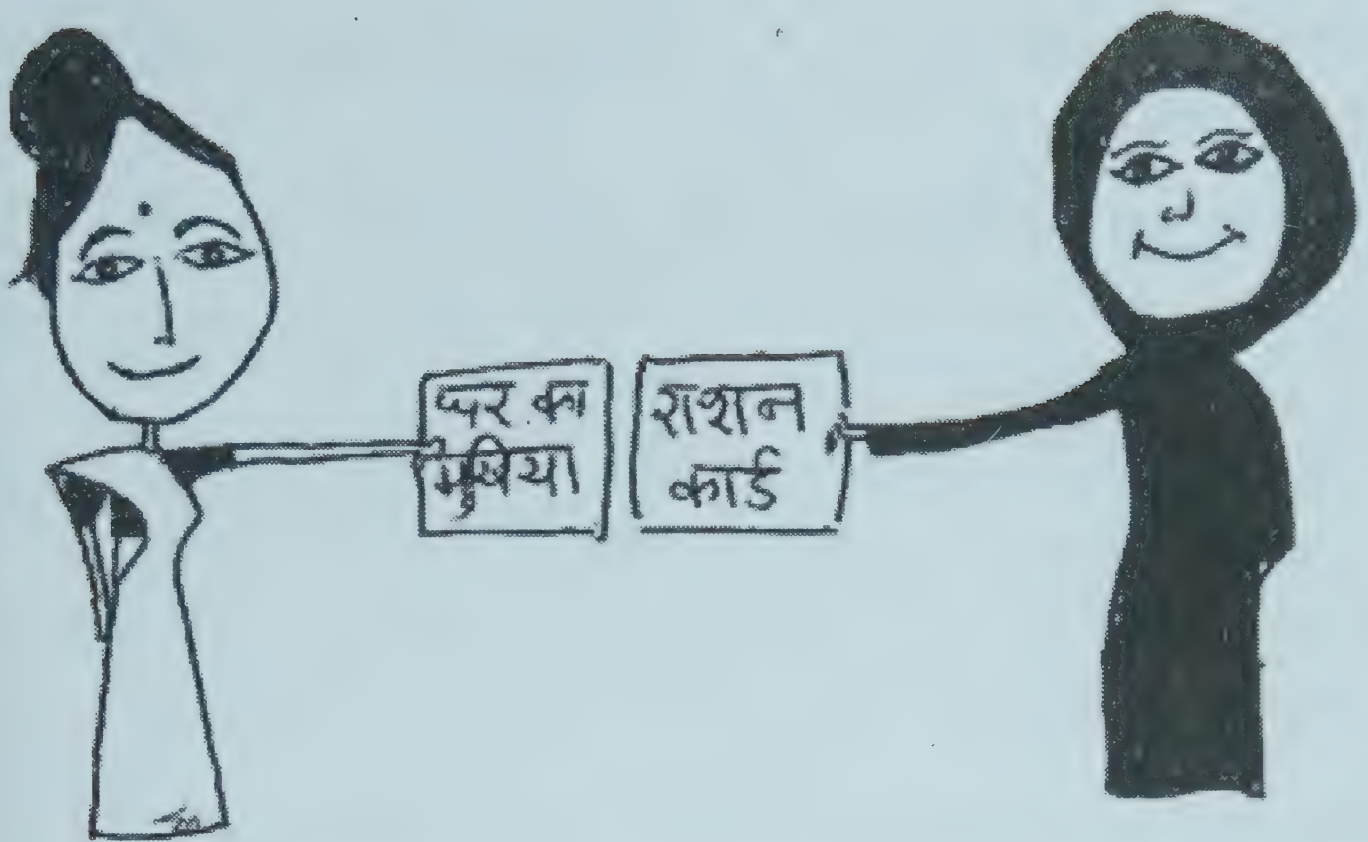 घर का
मुखिया
राशन
कार्ड